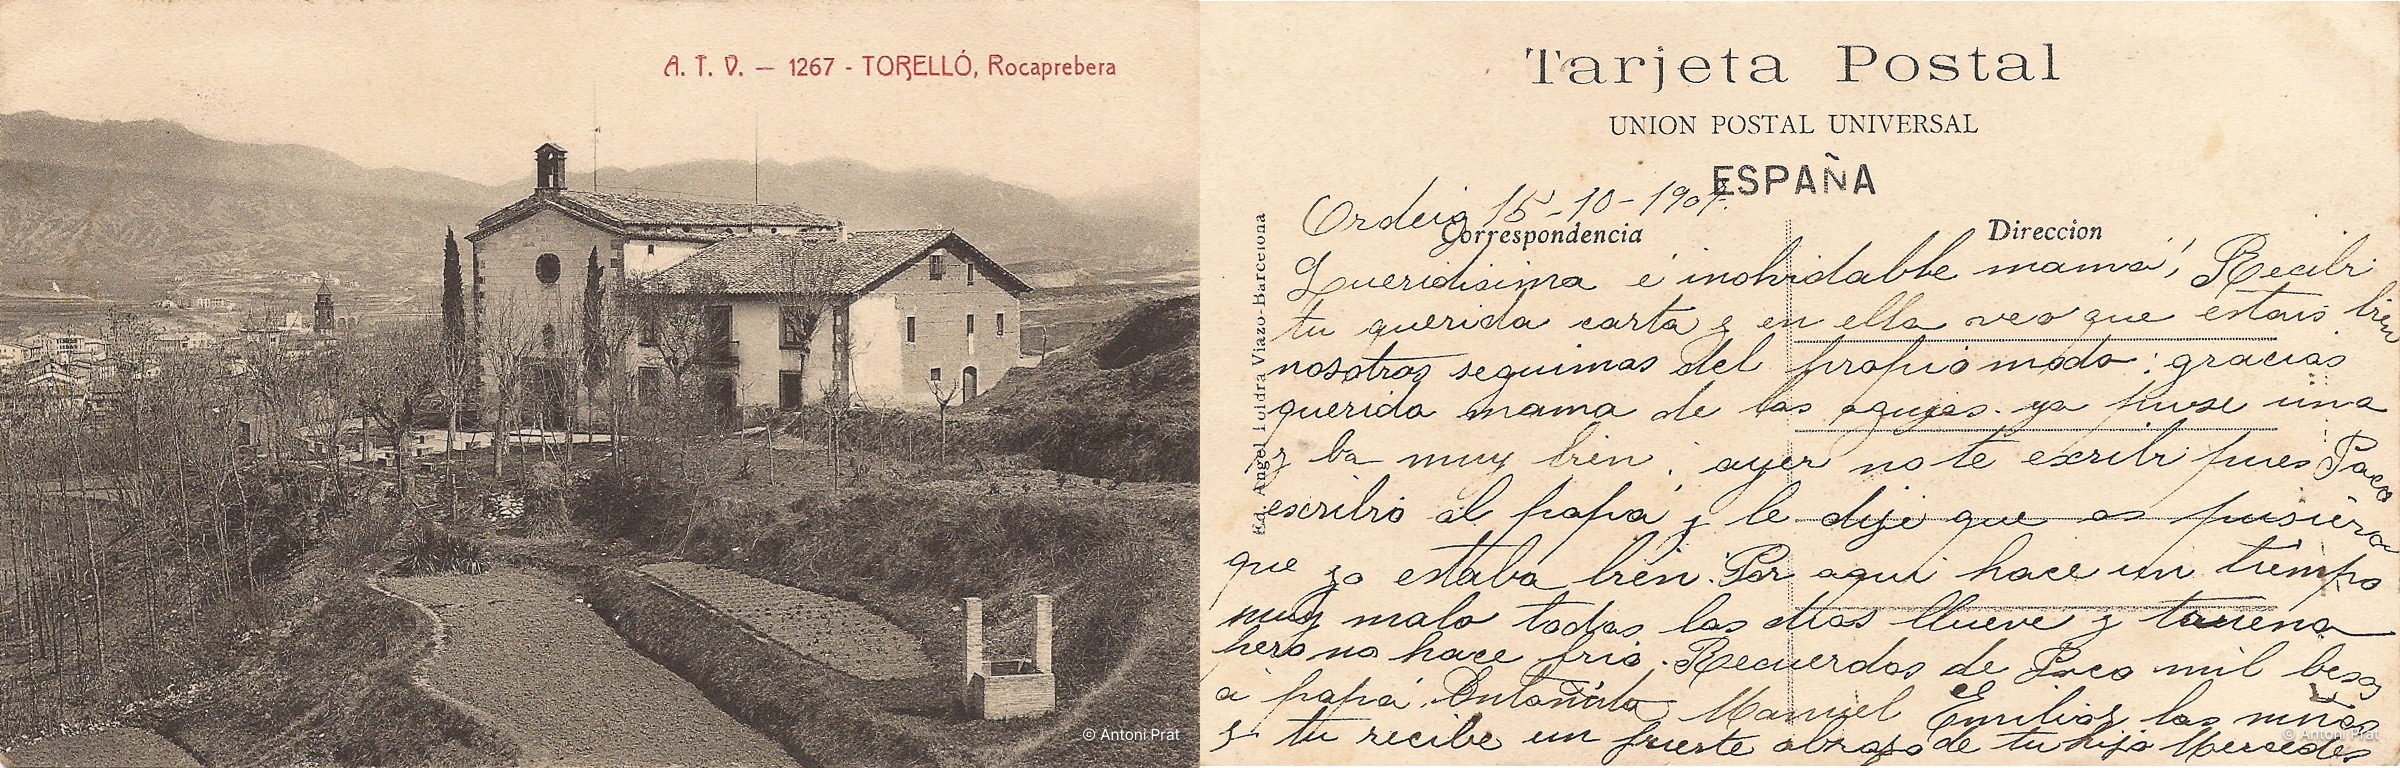 A. T. V. — 1267 - TORELLÓ, Rocaprebera
© Antoni Prat
Tarjeta Postal
UNION POSTAL UNIVERSAL
ESPAÑA
Ordeig 15-10-1907.
Correspondencia
Direccion
Ed. Angel Toldrá Viazo-Barcelona
Queridisima é inolvidable mamá, Recibi
tu querida carta y en ella veo que estais bien
nosotros seguimos del propio modo: gracias
querida mama de las agujas. ya puse una
y ba muy bien; ayer no te escribi pues Paco
escribio al papá y le dije que os pusiera
que yo estaba bien. Por aqui hace un tiempo
muy malo todos los dias llueve y
pero no hace frio. Recuerdos de Paco mil besos
á papá Manuel Emilio y las niñas
y tu recibe un fuerte abrazo de tu hija Mercedes
© Antoni Prat